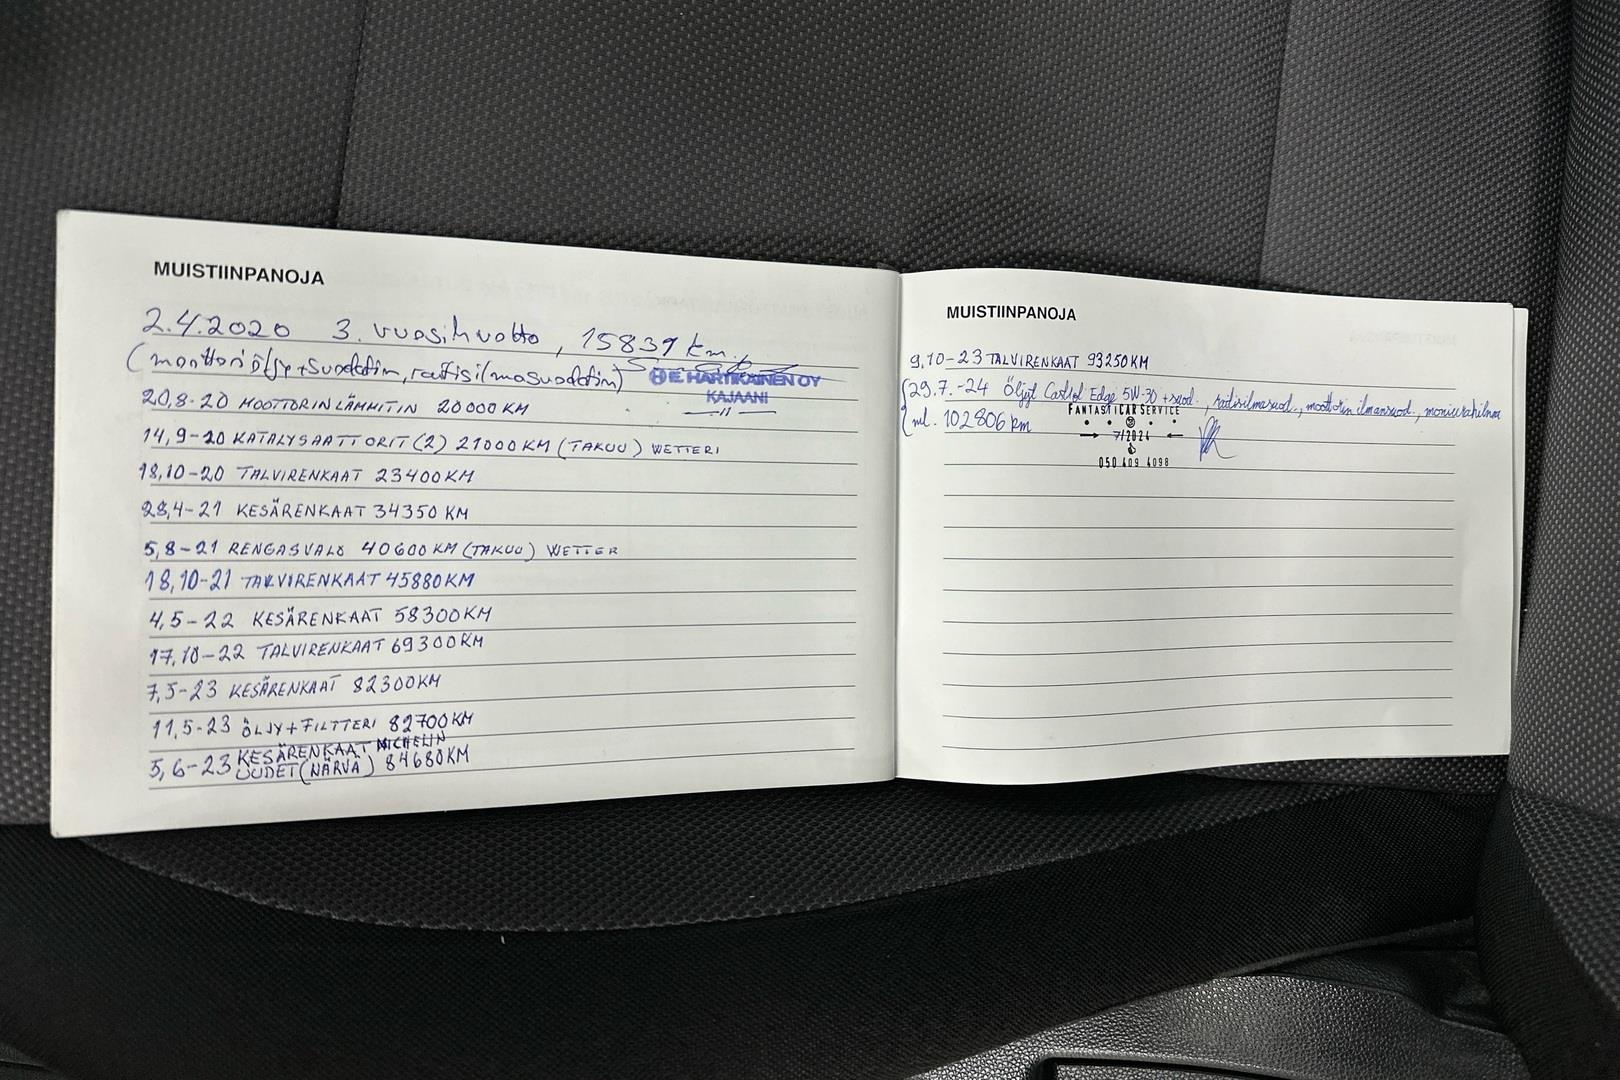 MUISTIINPANOJA
2.4.2020 3. vuosihuolto, 15839 km.
(moottoriöljy+suodatin, raitisilmasuodatin)
E. HARTIKAINEN OY
KAJAANI
20,8-20 MOOTTORINLÄMMITIN 20000 KM
14,9-20 KATALYSAATTORIT (2) 21000 KM (TAKUU) WETTERI
18,10-20 TALVIRENKAAT 23400 KM
28,4-21 KESÄRENKAAT 34350 KM
5,8-21 RENGASVALO 40600 KM (TAKUU) WETTER
18,10-21 TALVIRENKAAT 45880KM
4,5-22 KESÄRENKAAT 58300KM
17,10-22 TALVIRENKAAT 69300KM
7,5-23 KESÄRENKAAT 82300KM
11,5-23 ÖLJY+FILTTERI 82700KM
5,6-23 KESÄRENKAAT MICHELIN
UUDET (NÄRVÄ) 84680KM
MUISTIINPANOJA
9,10-23 TALVIRENKAAT 93250KM
29.7.-24 Öljyt Castrol Edge 5W-30 +suod., raitisilmasuod., moottorin ilmansuod., moniurahihna
ml. 102806 km
FANTASTICAR SERVICE
7/2024
050 409 4098